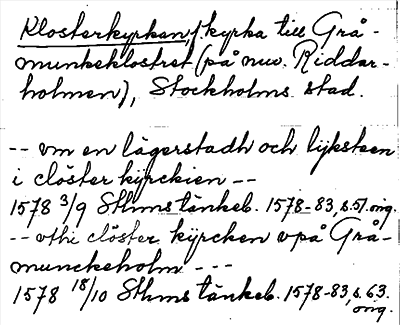 Klosterkyrkan / kyrka till Grå-
munkeklostret (på nuv. Riddar-
holmen), Stockholms stad.
-- vm en lägerstadh och lijksteen
i clöster kijrckien --
1578 3/9 Sthms tänkeb. 1578-83, s.51. orig.
-- vthi clöster kijrcken vpå Grå-
munckeholm ---
1578 18/10 Sthms tänkeb. 1578-83, s. 63.
orig.